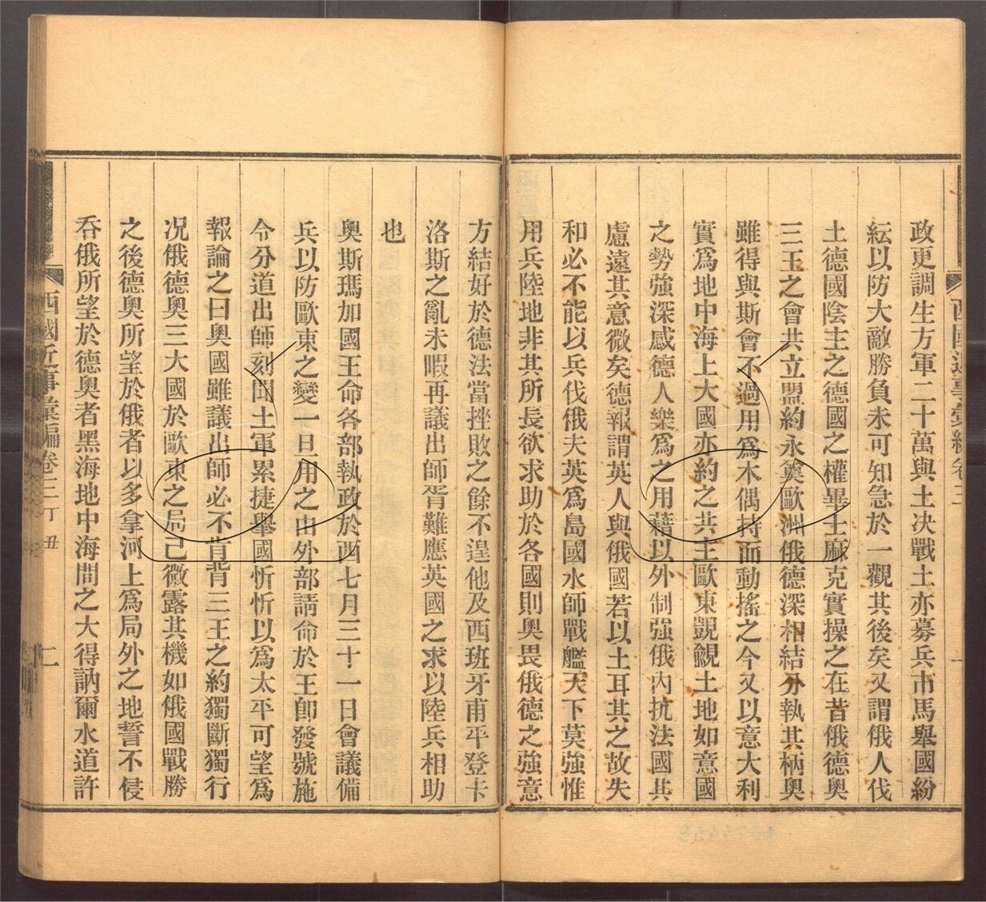 政更調生方軍二十萬與土決戰土亦募兵市馬舉國紛
紜以防大敵勝負未可知急於一觀其後矣又謂俄人伐
土德國陰主之德國之權畢士麻克實操之在昔俄德奧
三王之會共立盟約永奠歐洲俄德深相結分執其柄奧
雖得與斯會不過用爲木偶持而動搖之今又以意大利
實爲地中海上大國亦約之共主歐東覬覦土地如意國
之勢強深感德人樂爲之用藉以外制强俄內抗法國其
慮遠其意微矣德報謂英人與俄國若以土耳其之故失
和必不能以兵伐俄夫英爲島國水師戰艦天下莫強惟
用兵陸地非其所長欲求助於各國則奧畏俄德之強意
方結好於德法當挫敗之餘不遑他及西班牙甫平登卡
洛斯之亂未暇再議出師胥難應英國之求以陸兵相助
也
奧斯瑪加國王命各部執政於西七月三十一日會議備
兵以防歐東之變一旦用之由外部請命於王卽發號施
令分道出師刻聞土軍累捷舉國忻忻以爲太平可望爲
報論之曰奧國雖議出師必不肯背三王之約獨斷獨行
况俄德奧三大國於歐東之局已微露其機如俄國戰勝
之後德奧所望於俄者以多拿河上爲局外之地誓不侵
吞俄所望於德奧者黑海地中海間之大得訥爾水道許
西國近事彙編卷三丁丑
二